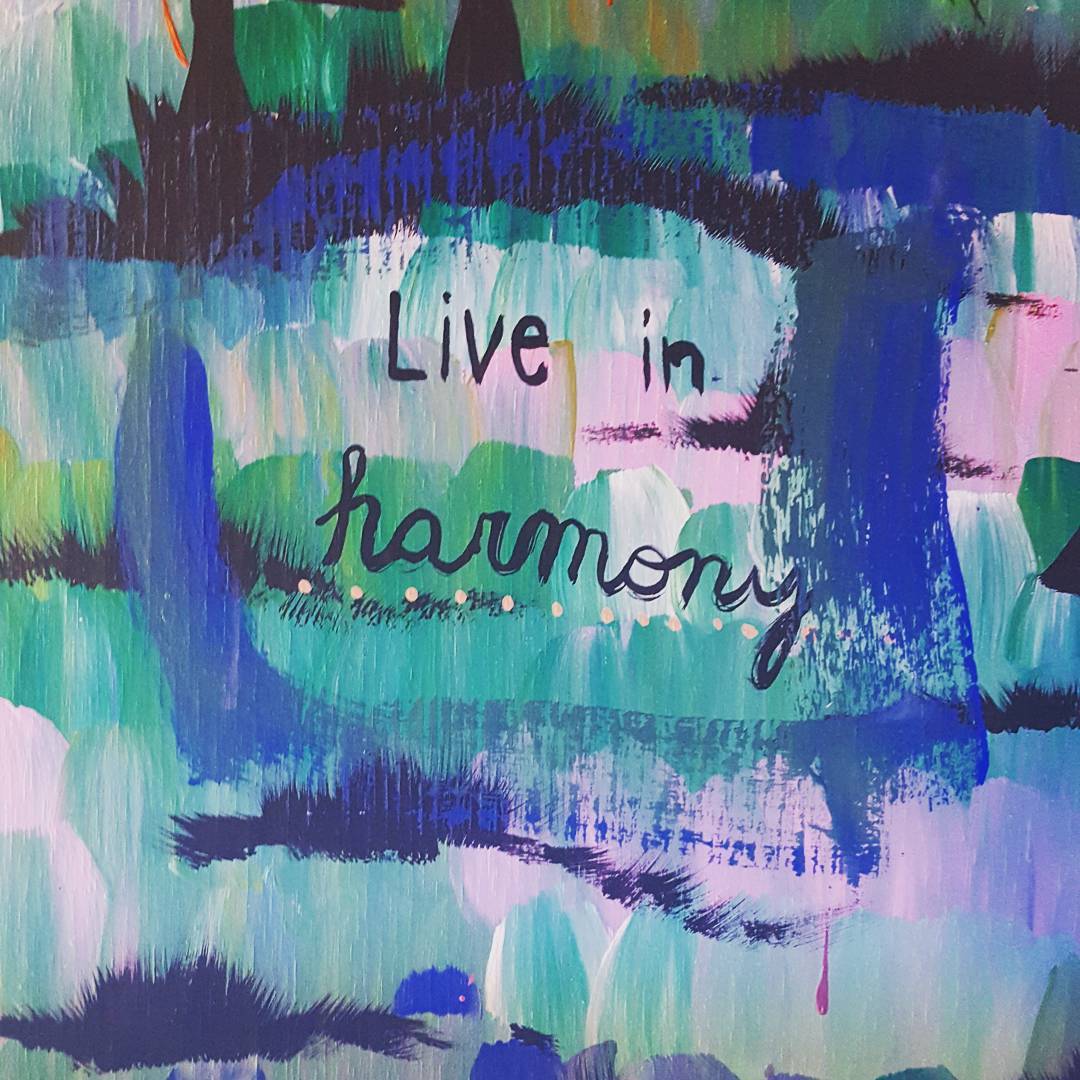 Live in
harmony